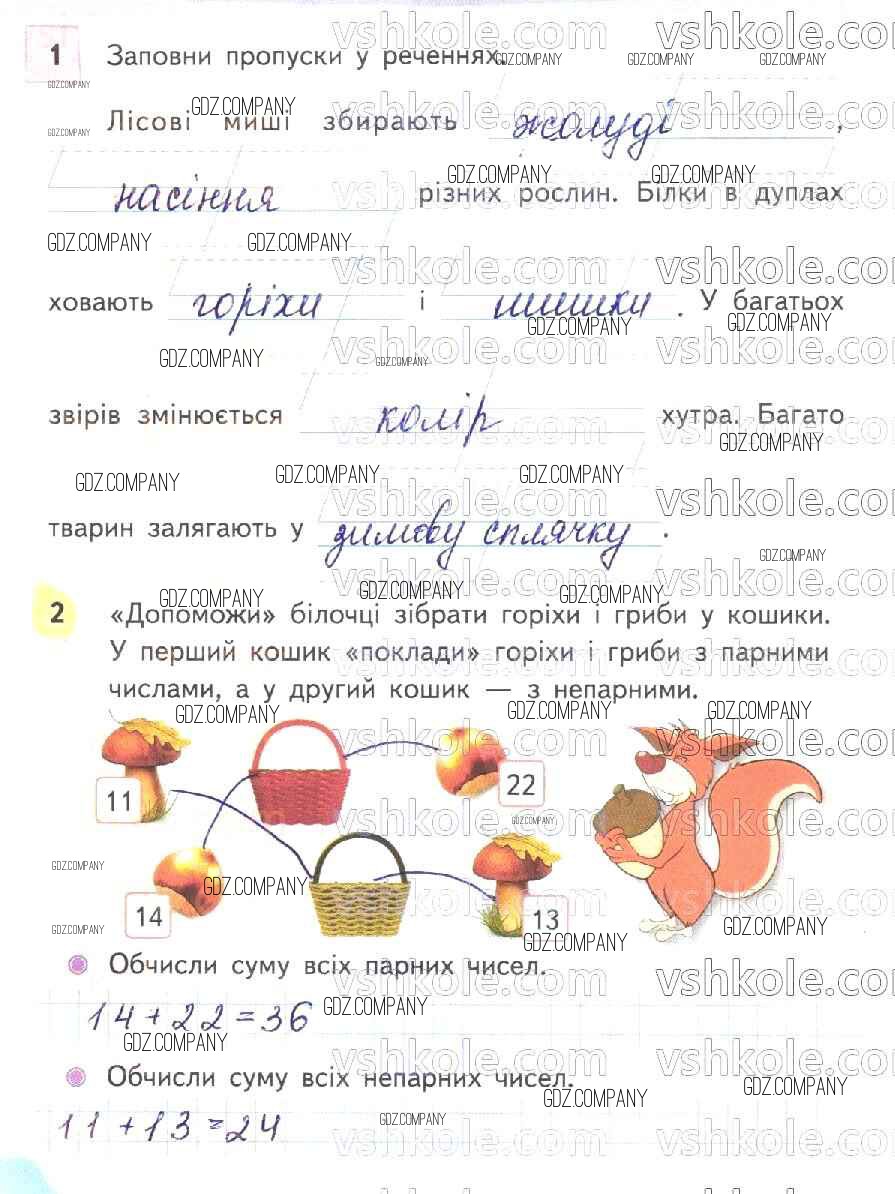 1 Заповни пропуски у реченнях.
Лісові миші збирають жолуді,
насіння різних рослин. Білки в дуплах
ховають горіхи і шишки. У багатьох
звірів змінюється колір хутра. Багато
тварин залягають у зимову сплячку.
2 «Допоможи» білочці зібрати горіхи і гриби у кошики.
У перший кошик «поклади» горіхи і гриби з парними
числами, а у другий кошик — з непарними.
11
22
14
13
Обчисли суму всіх парних чисел.
14+22=36
Обчисли суму всіх непарних чисел.
11+13=24
vshkole.com
GDZ.COMPANY